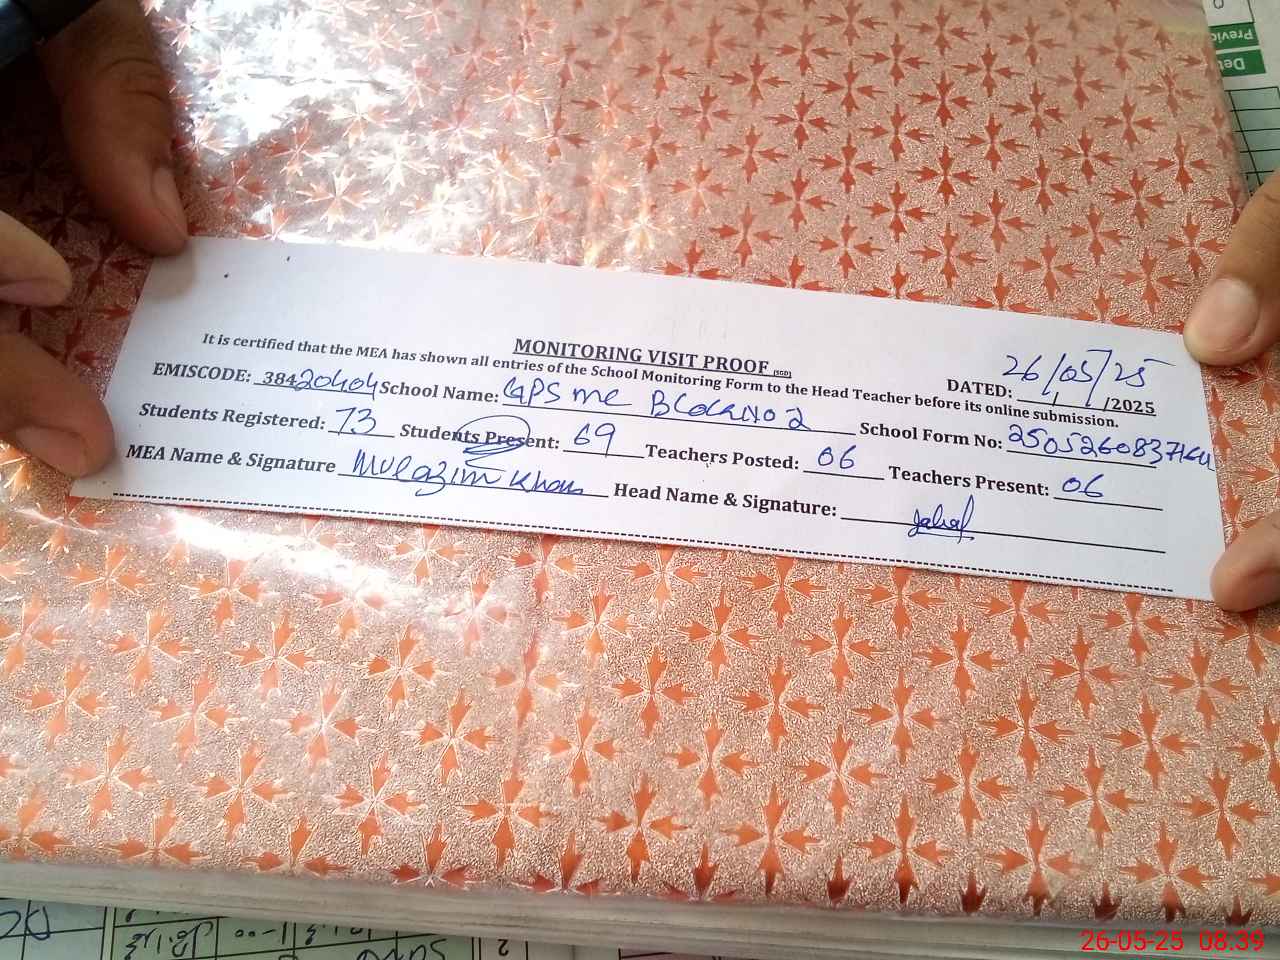 MONITORING VISIT PROOF (SGD)
DATED: 26/05/25 /2025
It is certified that the MEA has shown all entries of the School Monitoring Form to the Head Teacher before its online submission.
EMISCODE: 38420404 School Name: GPS MC Block No 2 School Form No:
Students Registered: 73 Students Present: 69 Teachers Posted: 06 Teachers Present: 06
MEA Name & Signature Mulazim Khan Head Name & Signature:
Previ
Det
26-05-25 08:39